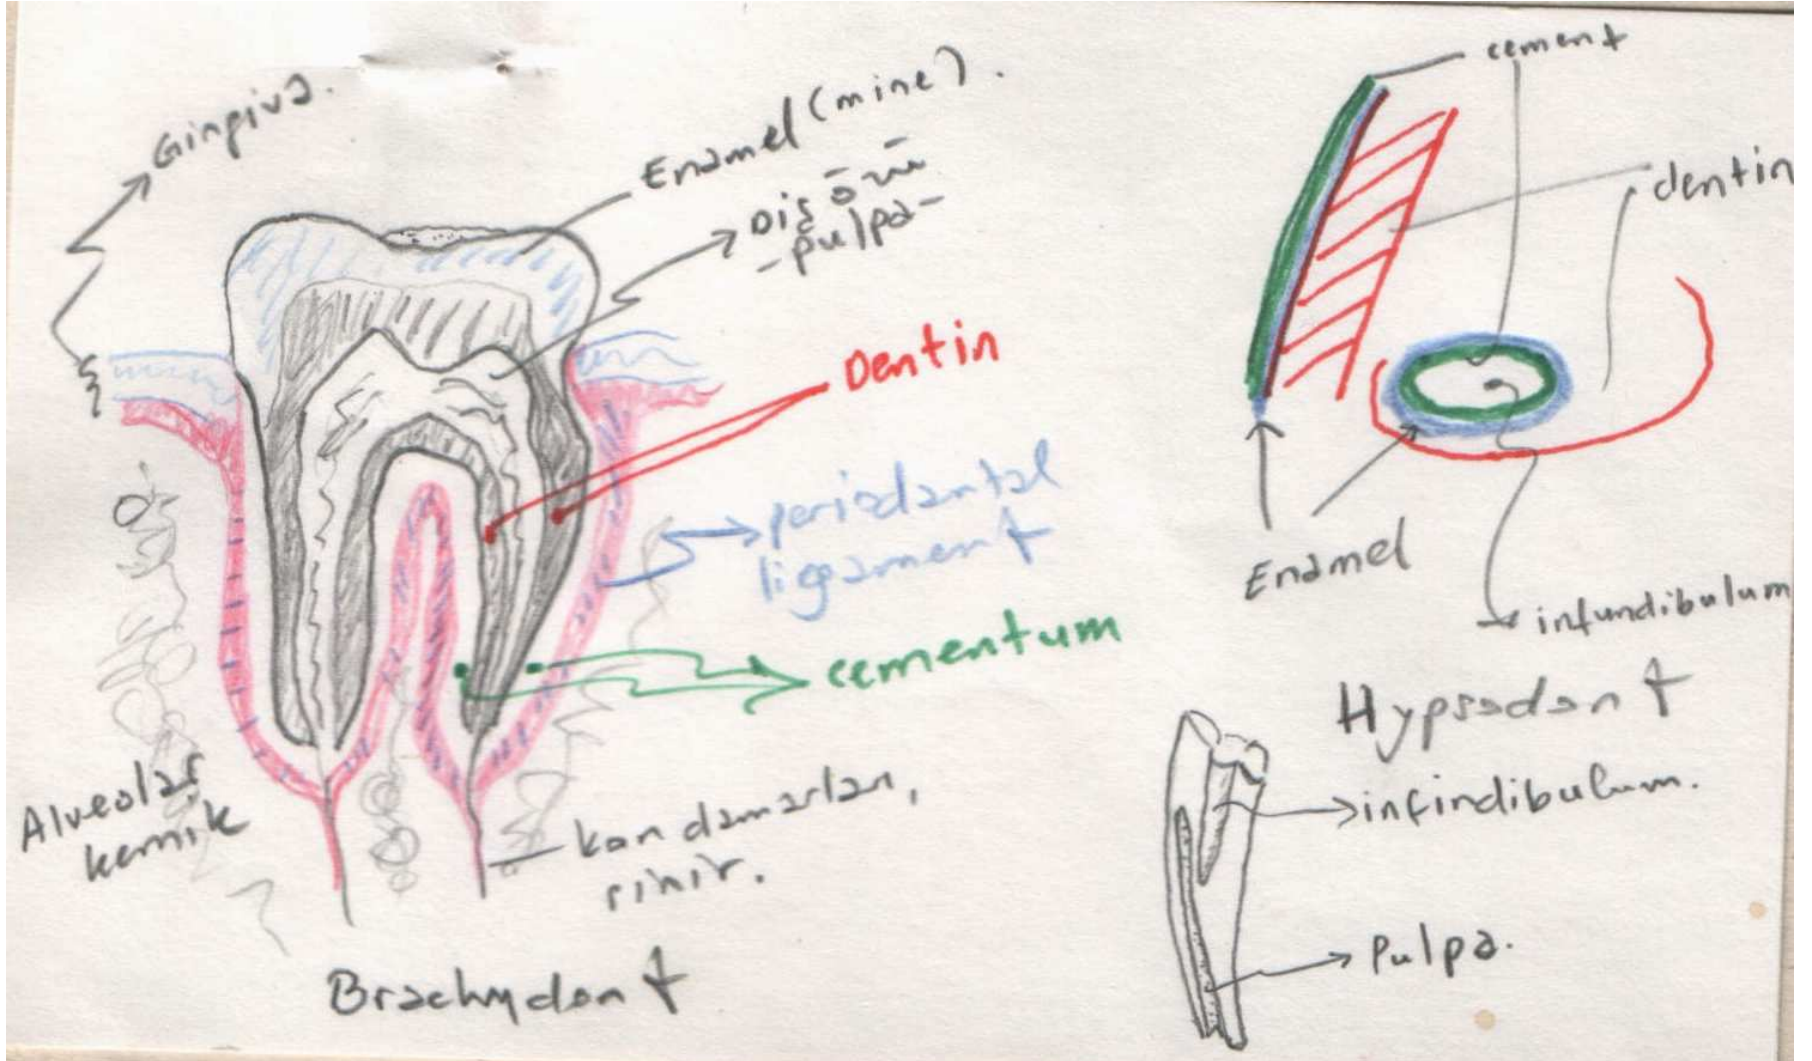 Gingiva.
Enamel (mine).
Diş özü
-pulpa-
Dentin
periodantal
ligament
cementum
Alveolar
kemik
kan damarları,
sinir.
Brachydont
cement
dentin
Enamel
infundibulum
Hypsodont
infindibulum.
Pulpa.